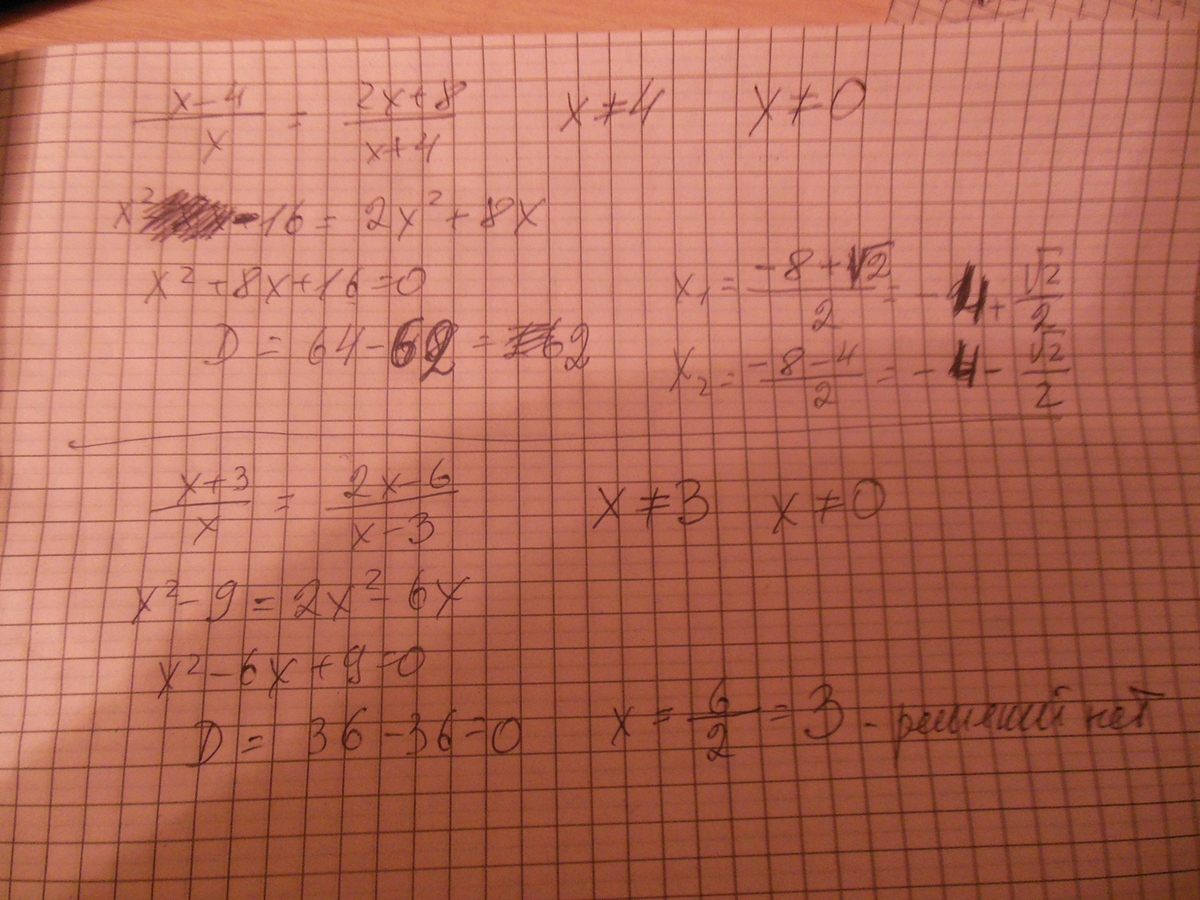 x-4/x = 2x+8/x+4 x≠4 x≠0
x² -16 = 2x² + 8x
x² + 8x + 16 = 0
D = 64 - 62 = 2
x₁ = -8+√2/2 = -4 + √2/2
x₂ = -8-4/2 = -4 - √2/2
x+3/x = 2x-6/x-3 x≠3 x≠0
x² - 9 = 2x² - 6x
x² - 6x + 9 = 0
D = 36 - 36 = 0 x = 6/2 = 3 - решений нет